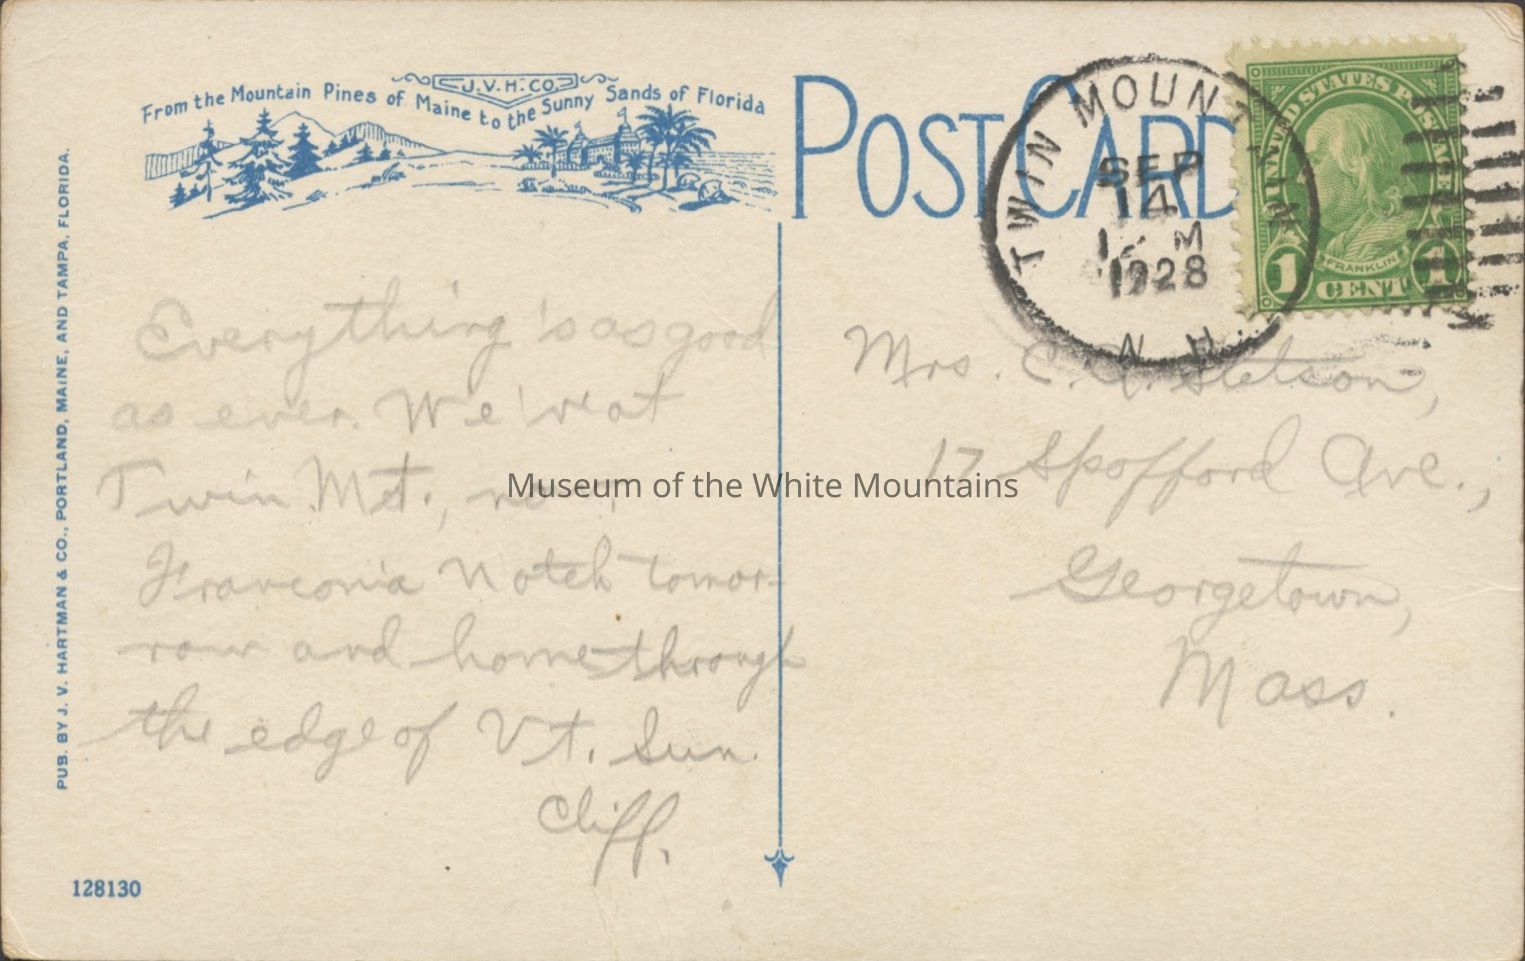 From the Mountain Pines of Maine to the Sunny Sands of Florida
J.V.H.CO.
POST CARD
TWIN MOUNT
N.H.
SEP
14
12 M
1928
UNITED STATES POSTAGE
FRANKLIN
1 CENT 1
PUB. BY J. V. HARTMAN & CO., PORTLAND, MAINE, AND TAMPA, FLORIDA.
Everything's as good
as ever. We're at
Twin Mt., now.
Franconia Notch tomor-
row and home through
the edge of Vt. Sun.
Cliff.
Mrs. C. A. Stetson,
17 Spofford Ave.,
Georgetown,
Mass.
128130
Museum of the White Mountains